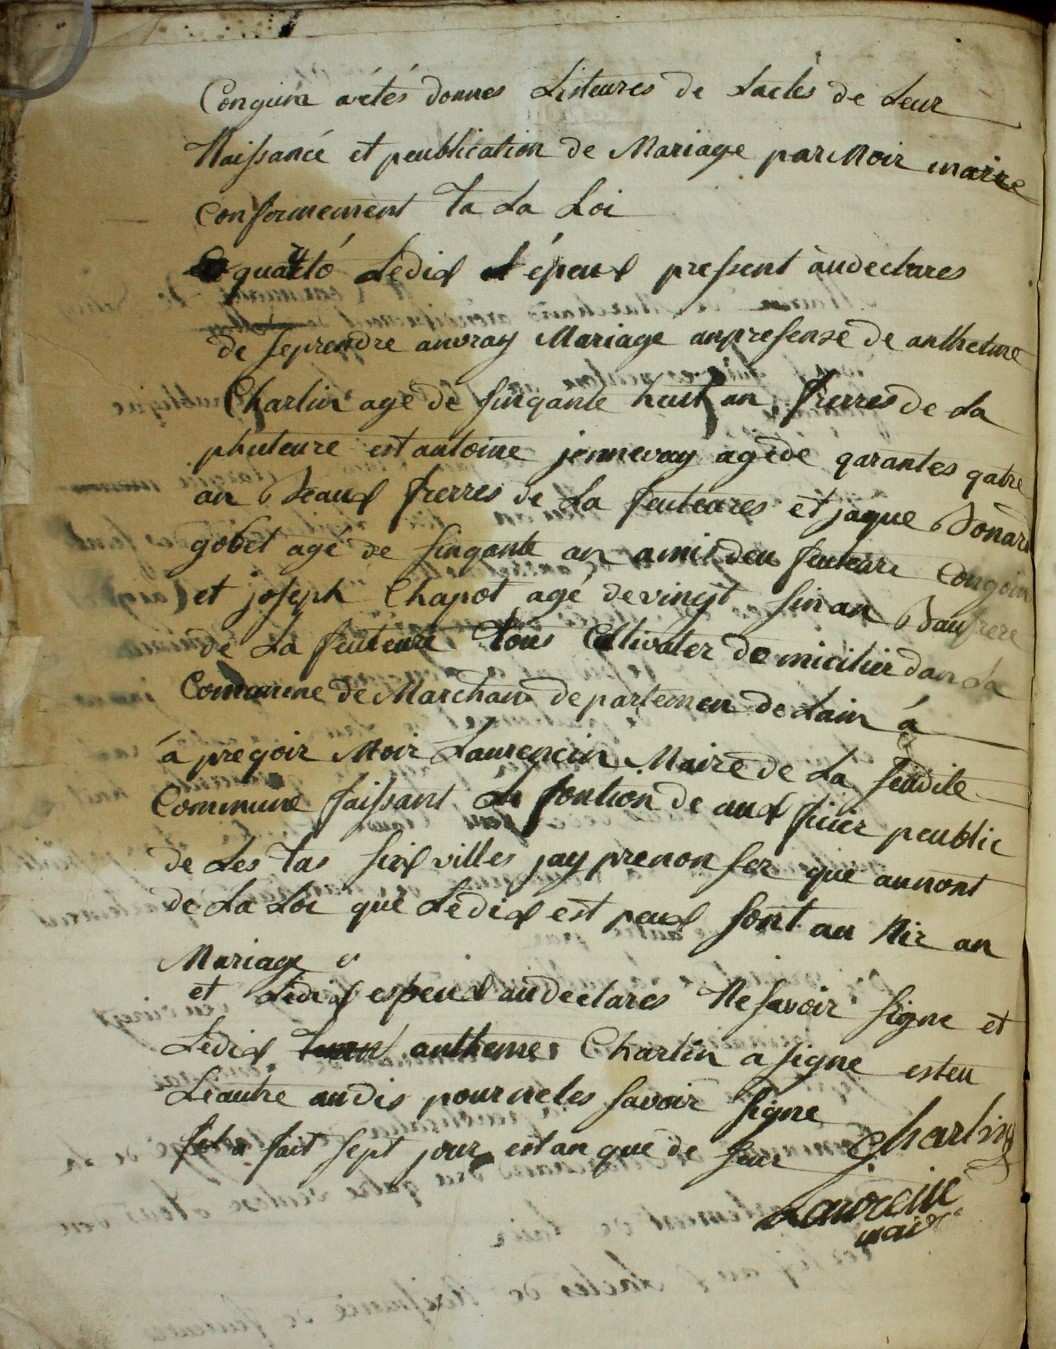 Conguin aétés donnes Listeures de Lactes de Leur
Naissancé et peublication de Mariage par Moir maire
conformement ta La Loi
quattó Ledis épeux pressent àudectares
de seprendre auvray Mariage anpresense de antheture
Charlin agé de singante huit an frerres de La
phuteure est antoine jennevay agede garantes gatre
an Beaux frerres de La feuteares et jaque Bonard
gobet agé de singante an amis deu feuteure Congoin
et joseph Chapot agé de vingt sin an Bau frere
de La feuteure tous Cultivater domicilier dan La
Commune de Marchan departemen de Lain á
á pregoir Moir Laurencin Maire de La sudite
Commune faissant La fontion de aux ficier peublic
de Les tas sisx villes jay prenonser que aunont
de La Loi que Ledix est peux sont au Nir an
Mariage
et Ledix espeux audectares Ne savoir signe et
Ledix antheme Charlin a signe esteu
Leautre audis pour neles savoir signe
fait sept jour estan que de seur Charlin
Laurencin
maire